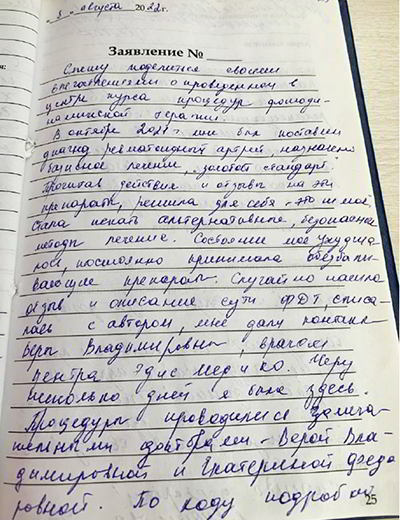 "5" августа 2022г.
Заявление №
Спешу поделиться своими
впечатлениями о проведенном в
центре курса процедур фотоди-
намической терапии.
В октябре 2021г. мне был поставлен
диагноз ревматоидный артрит, назначено
базивное лечение, "золотой стандарт".
Прочитав действия и отзывы на эти
препараты, решила для себя - это не моё
Стала искать альтернативные, безопасные
методы лечение. Состояние моё ухудша
лось, постоянно принимала обезболи
вающие препараты. Случайно нашла
отзыв и описание сути ФДТ, списа-
лась с автором, мне дали контакт
Веры Владимировны, врачом
центра Эдис Мед и Ко. Через
несколько дней я была здесь.
Процедуры проводились замеча
тельными докторами - Верой Вла-
димировной и Екатериной Федо
ровной. По ходу подробно
25